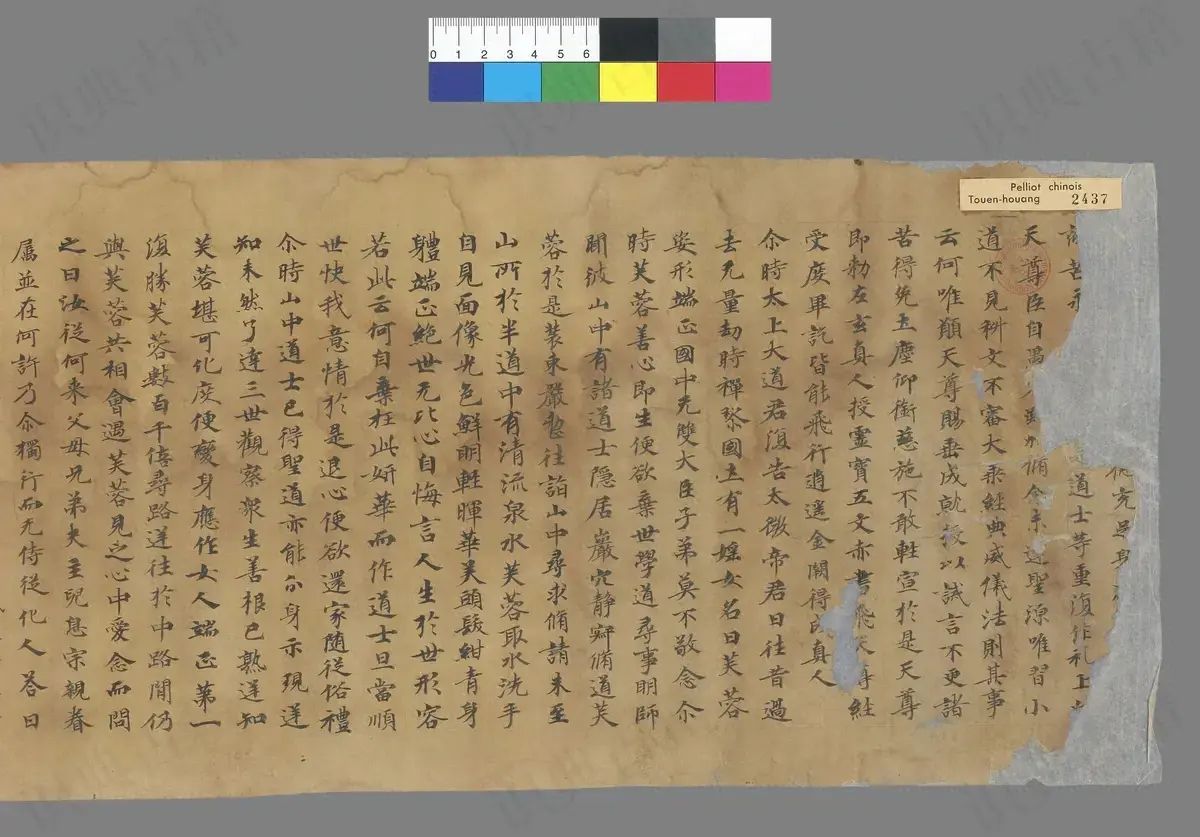 Pelliot chinois
Touen-houang 2437
0 1 2 3 4 5 6
身
道士等重復作礼上
天尊臣自 脩 聖源唯習小
道不見秘文不審大乘經典威儀法則其事
云何唯願天尊賜垂成就授以誡言不更諸
苦得免五塵仰銜慈施不敢輕宣於是天尊
即勑左玄真人授靈寶五文赤書飛天尊經
受度畢訖皆能飛行逍遥金闕得 真人
尒時太上大道君復告太微帝君曰往昔過
去无量劫時禪黎國土有一婬女名曰芙蓉
姿形端正國中无雙大臣子弟莫不敬念尒
時芙蓉善心即生便欲棄世學道尋事明師
聞彼山中有諸道士隱居巖穴静寂脩道芙
蓉於是裝束嚴整往詣山中尋求脩請未至
山所於半道中有清流泉水芙蓉取水洗手
自見面像光色鮮明輕暉華美頭髮紺青身
體端正絶世无比心自悔言人生於世形容
若此云何自棄枉此妍華而作道士旦當順
世快我意情於是退心便欲還家随從俗禮
尒時山中道士已得聖道亦能分身示現逆
知未然了達三世觀察衆生善根已熟逆知
芙蓉堪可化度便變身應作女人端正第一
復勝芙蓉數百千倍尋路逆往於中路間仍
與芙蓉共相會遇芙蓉見之心中愛念而問
之曰汝從何来父母兄弟夫主兒息宗親眷
属並在何許乃尒獨行而无侍從化人荅曰